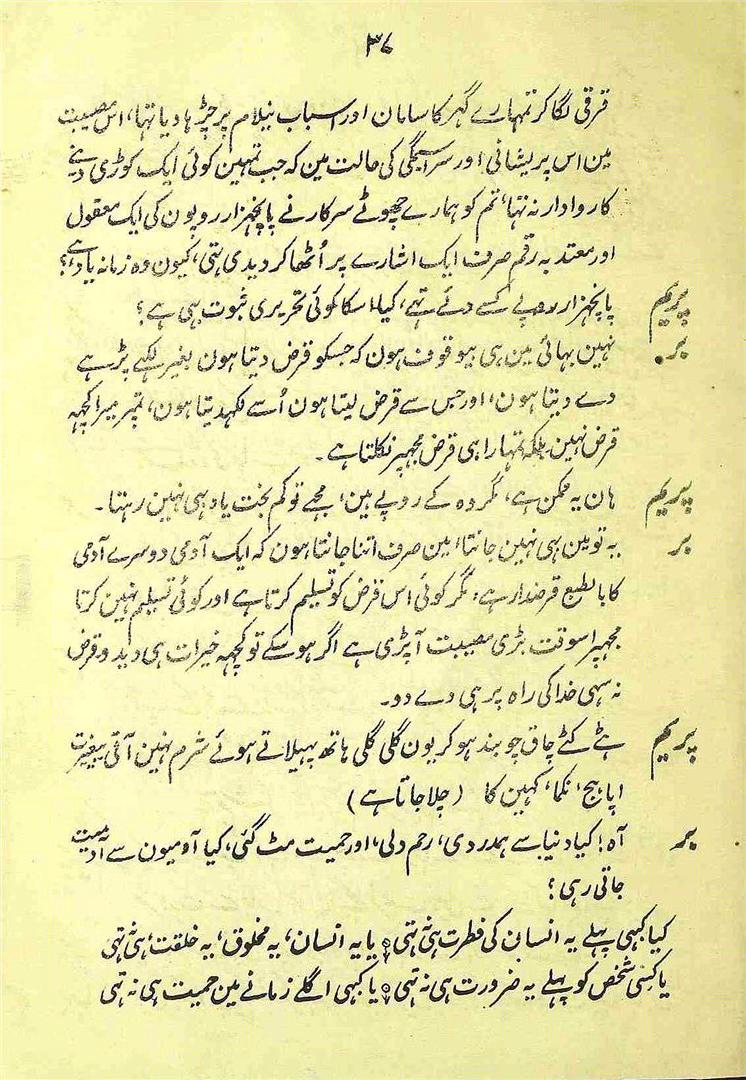 ۳۷
قرقی لگا کر تمہارے گہر کا سامان اور اسباب نیلام پر چڑہا دیا تہا، اس مصیبت
مین اس پریشانی اور سراسیمگی کی حالت مین کہ جب تمہین کوئی ایک کوڑی دینے
کا روادار نہ تہا، تم کو ہمارے چہوٹے سرکار نے پانچہزار روپون کی ایک معقول
اور معتد بہ رقم صرف ایک اشارے پر اُٹھا کر دیدی تہی، کیون وہ زمانہ یاد ہے؟
پریم پانچہزار روپے کسے دئے تہے، کیا اسکا کوئی تحریری ثبوت بہی ہے؟
بر. نہین بہائی مین ہی بیوقوف ہون کہ جسکو قرض دیتا ہون بغیر لکہے پڑہے
دے دیتا ہون، اور جس سے قرض لیتا ہون اُسے لکہدیتا ہون، تمپر میرا کچہہ
قرض نہین بلکہ تمہارا ہی قرض مجہپر نکلتا ہے۔
پریم ہان یہ ممکن ہے، مگر وہ کے روپے ہین، مجہے تو کم بخت یاد ہی نہین رہتا۔
بر یہ تو مین بہی نہین جانتا، مین صرف اتنا جانتا ہون کہ ایک آدمی دوسرے آدمی
کا بالطبع قرضدار ہے، مگر کوئی اس قرض کو تسلیم کرتا ہے اور کوئی تسلیم نہین کرتا
مجہپر اسوقت بڑی مصیبت آ پڑی ہے اگر ہو سکے تو کچہہ خیرات ہی دیدو قرض
نہ سہی خدا کی راہ پر ہی دے دو۔
پریم ہٹے کٹے چاق چوبند ہو کر یون گلی گلی ہاتھ پہیلاتے ہوئے شرم نہین آتی بیغیرت
اپاہیج، نکما، کہین کا (چلا جاتا ہے)
بر آہ! کیا دنیا سے ہمدردی، رحم دلی، اور حمیت مٹ گئی، کیا آدمیون سے آدمیت
جاتی رہی؟
کیا کبہی پہلے یہ انسان کی فطرت ہی نہ تہی یا یہ انسان، یہ مخلوق، یہ خلقت، ہی نہ تہی
یا کسی شخص کو پہلے یہ ضرورت ہی نہ تہی یا کبہی اگلے زمانے مین حمیت ہی نہ تہی